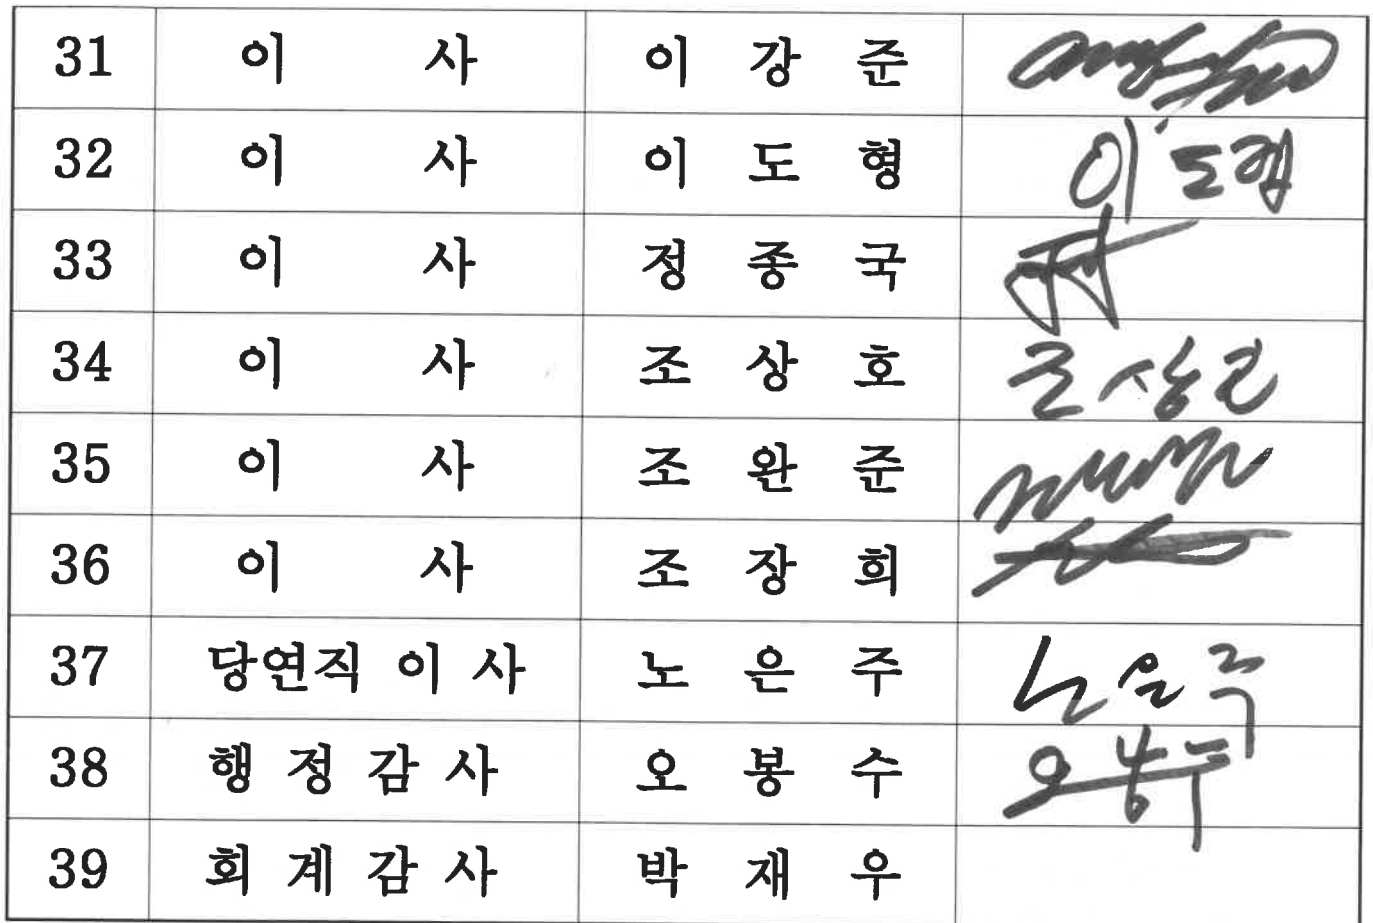 31 이 사 이 강 준
32 이 사 이 도 형 이도형
33 이 사 정 종 국
34 이 사 조 상 호 조상호
35 이 사 조 완 준
36 이 사 조 장 희
37 당연직 이 사 노 은 주 노은주
38 행 정 감 사 오 봉 수 오봉수
39 회 계 감 사 박 재 우